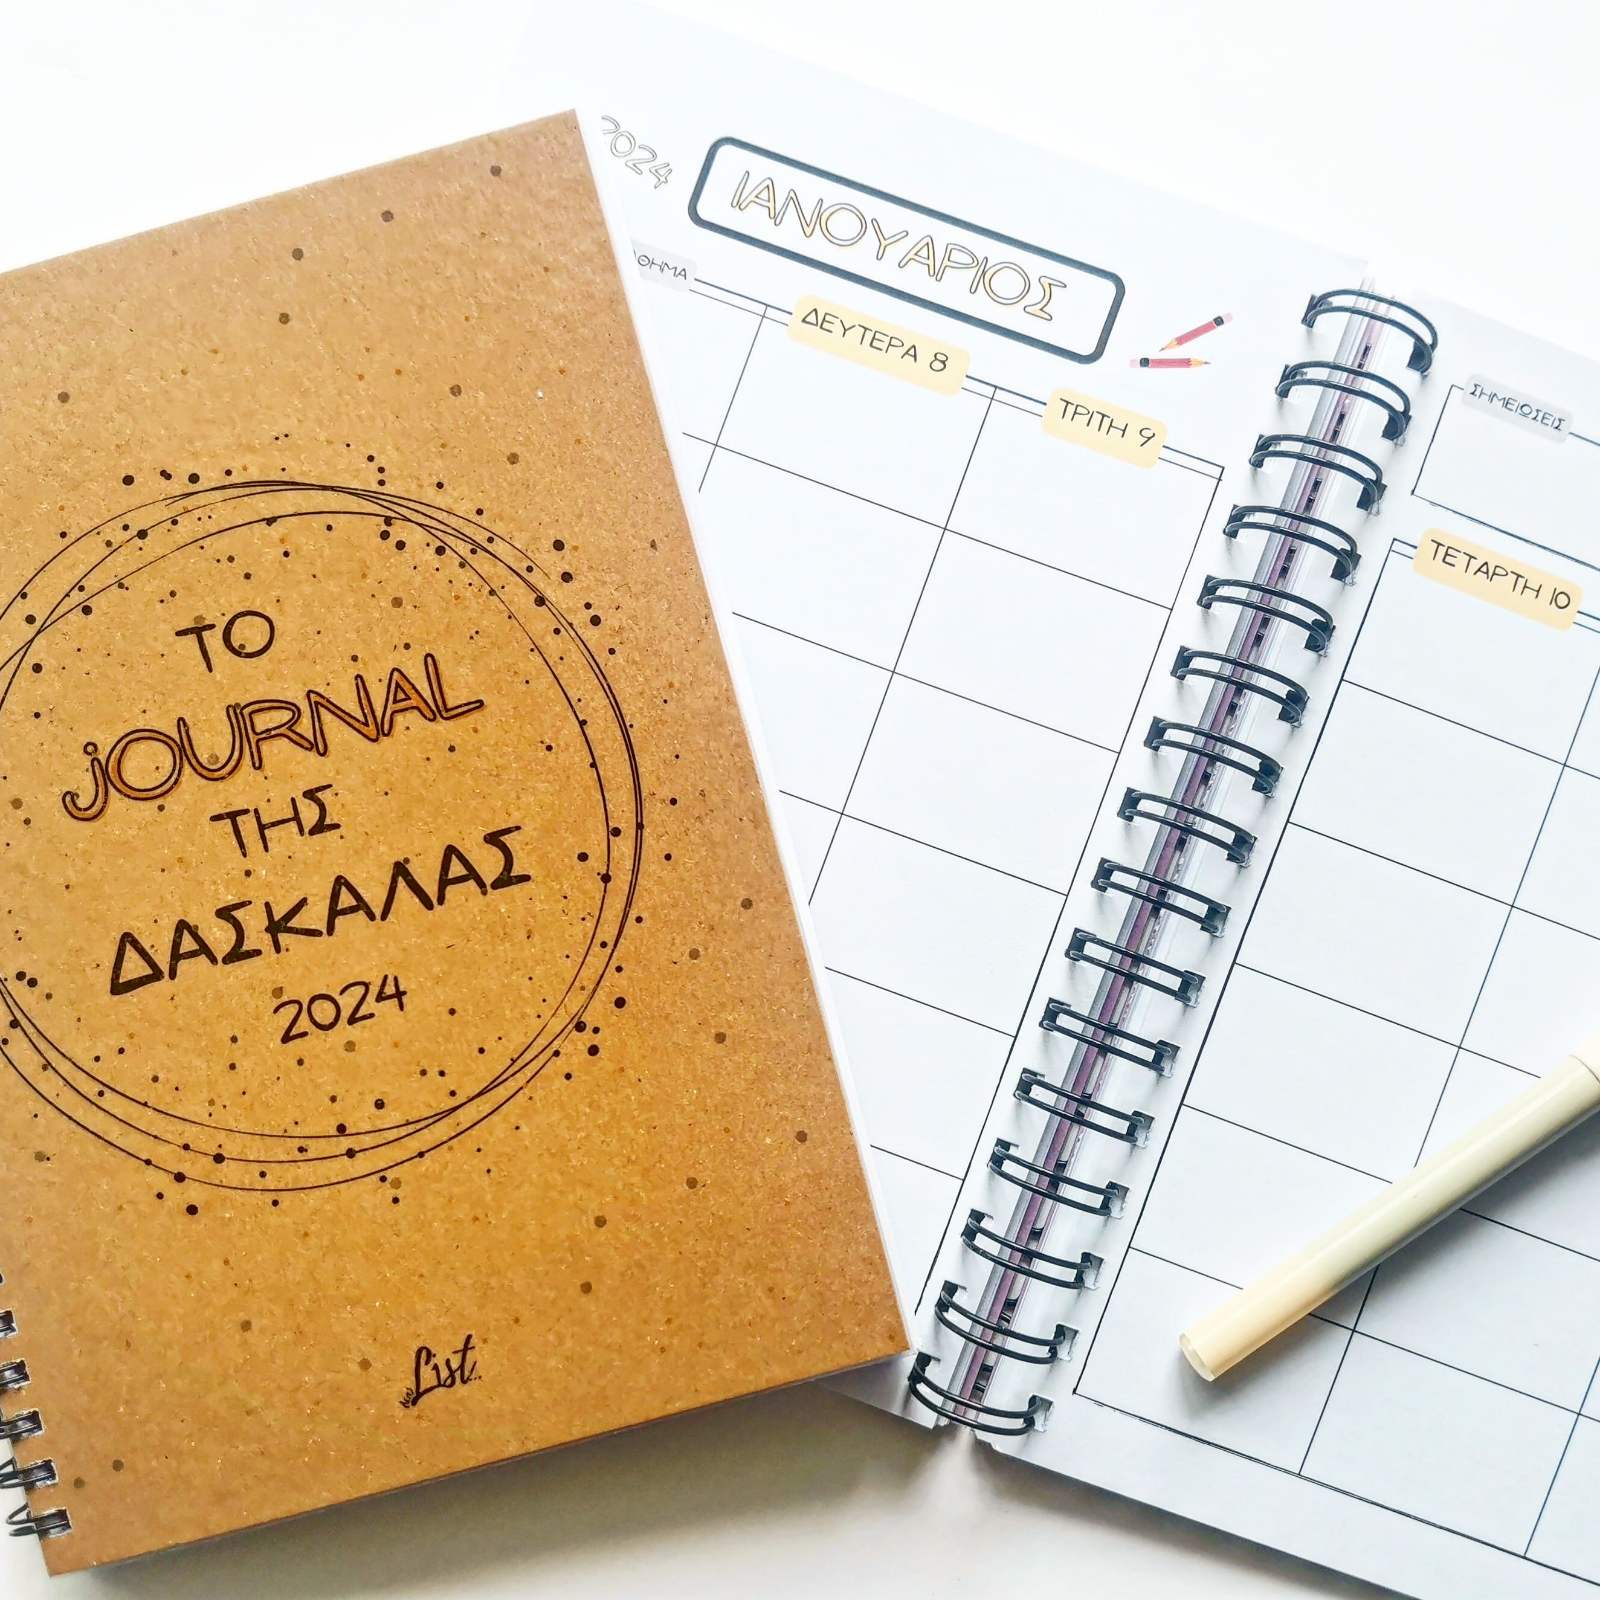 ΤΟ
jOURNAL
ΤΗΣ
ΔΑΣΚΑΛΑΣ
2024
List
2024
ΙΑΝΟΥΑΡΙΟΣ
ΔΕΥΤΕΡΑ 8
ΤΡΙΤΗ 9
ΣΗΜΕΙΩΣΕΙΣ
ΤΕΤΑΡΤΗ 10